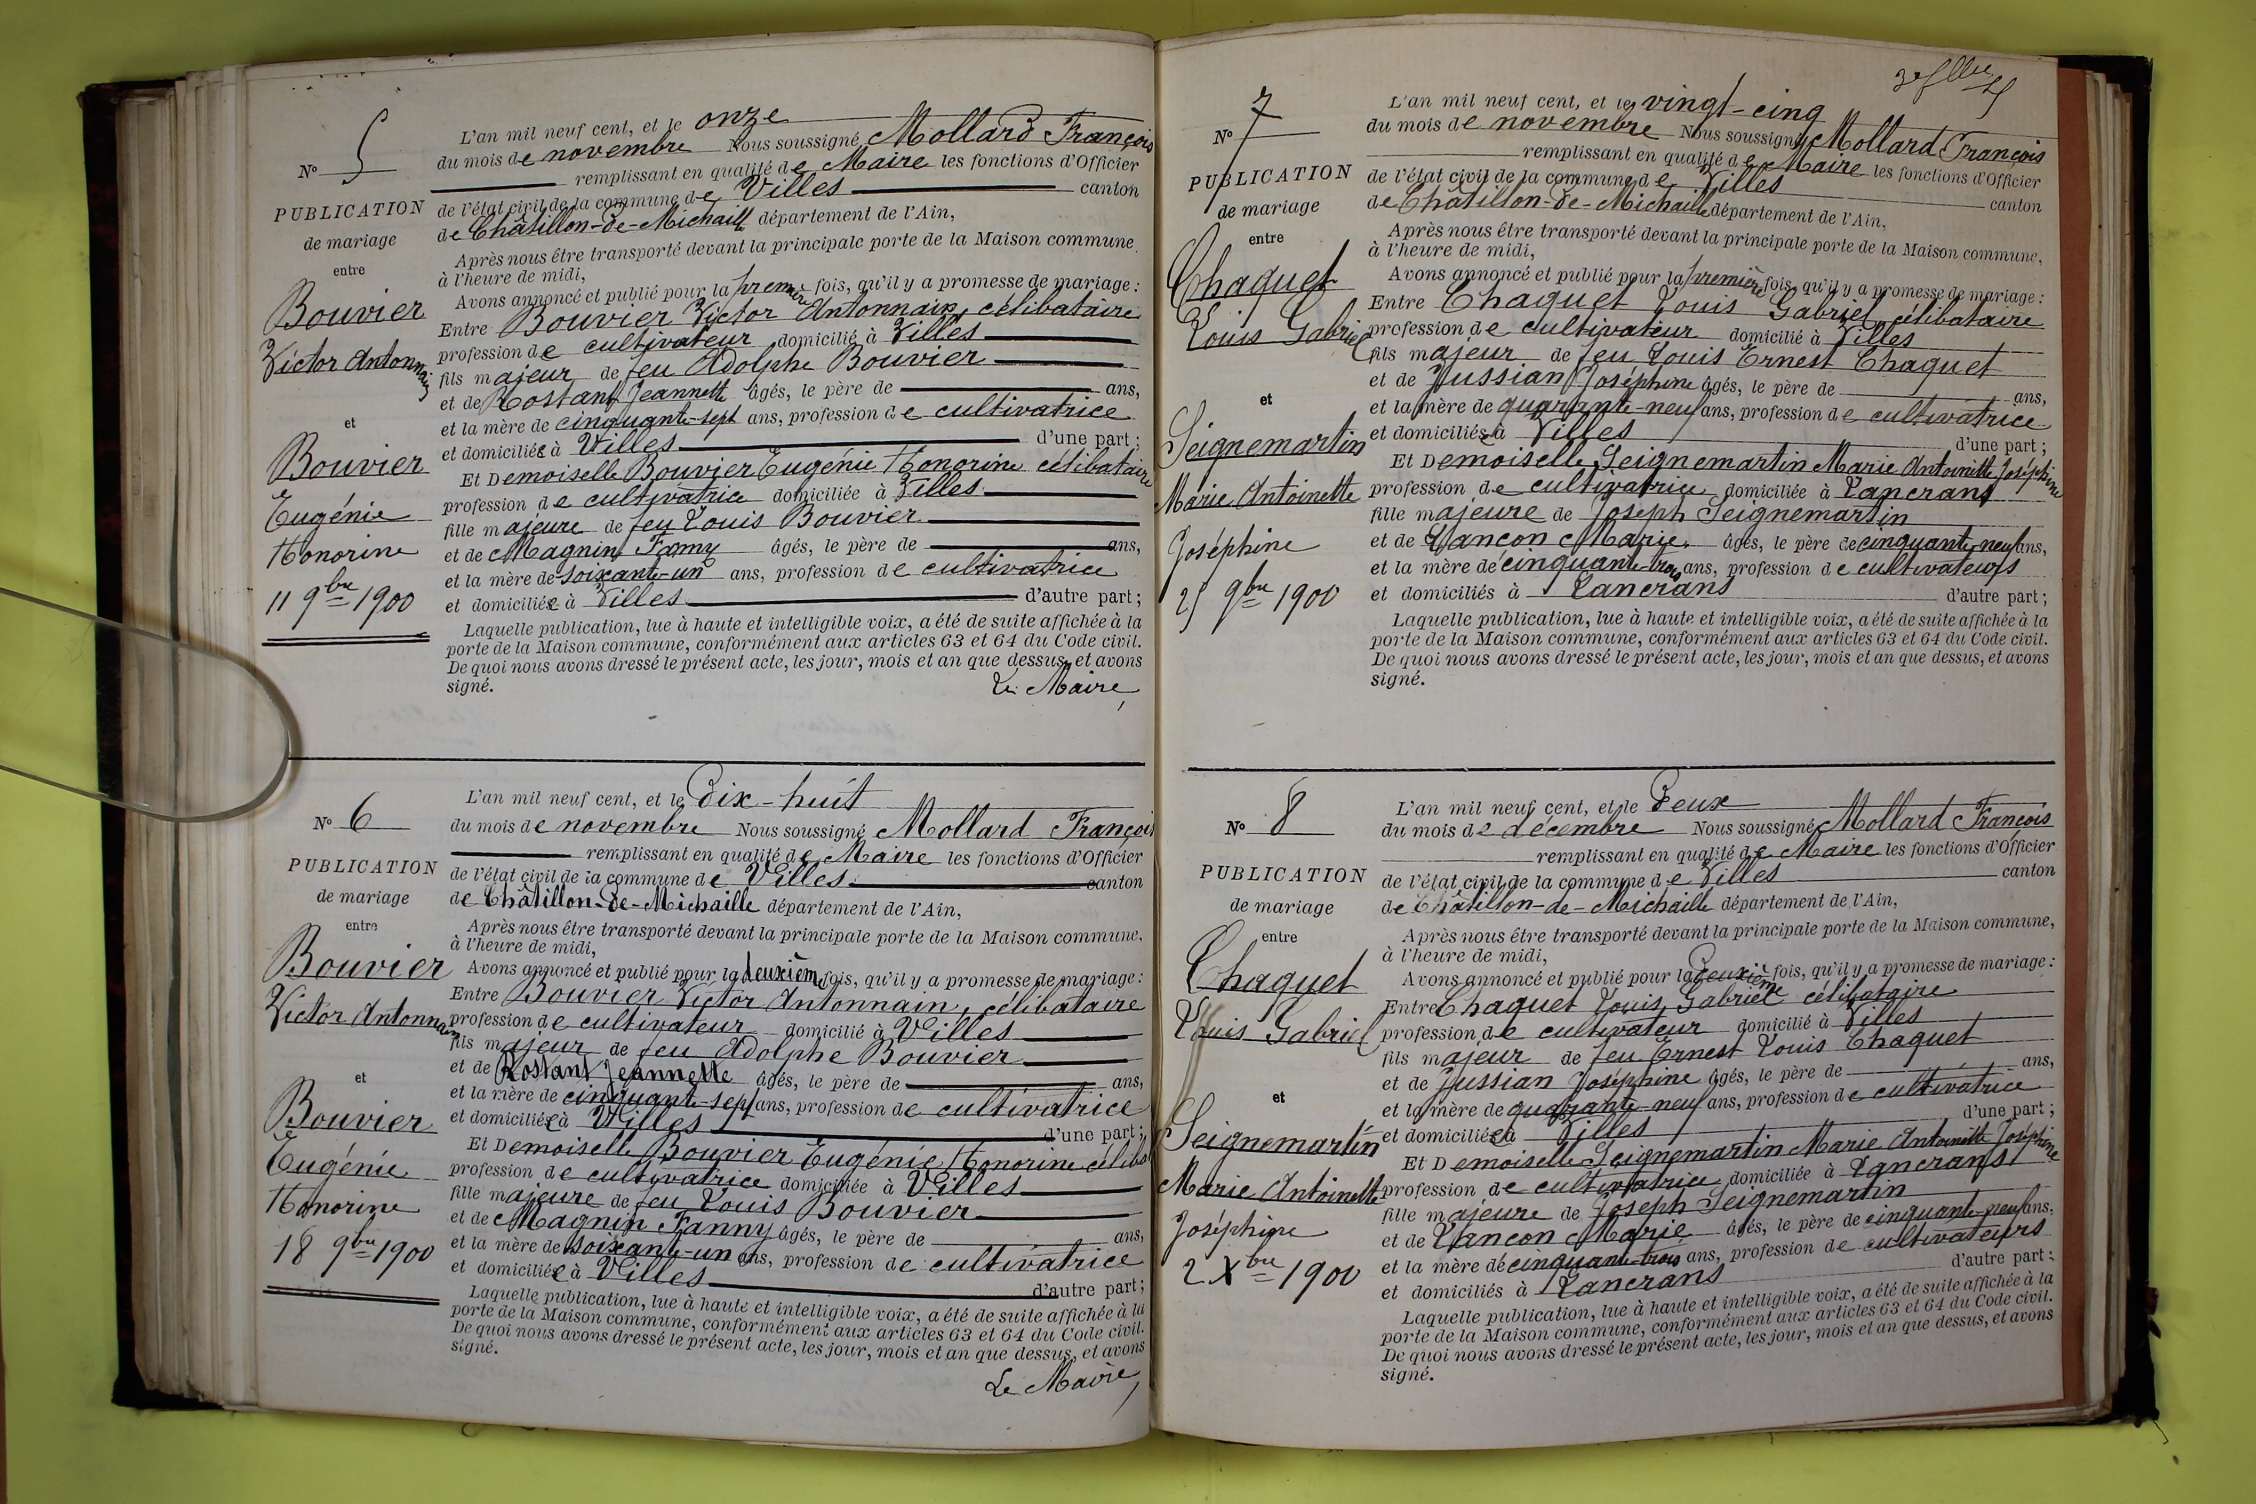 N° 5
PUBLICATION
de mariage
entre
Bouvier
Victor Antonnain
et
Bouvier
Eugénie
Honorine
11 9bre 1900
L'an mil neuf cent, et le onze
du mois de novembre Nous soussigné Mollard François
remplissant en qualité de Maire les fonctions d'Officier
de l'état civil de la commune de Villes canton
de Châtillon-de-Michaille département de l'Ain,
Après nous être transporté devant la principale porte de la Maison commune
à l'heure de midi,
Avons annoncé et publié pour la première fois, qu'il y a promesse de mariage :
Entre Bouvier Victor Antonnain, célibataire
profession de cultivateur domicilié à Villes
fils majeur de feu Adolphe Bouvier
et de Rostant Jeannette âgés, le père de ans,
et la mère de cinquante-sept ans, profession de cultivatrice
et domiciliée à Villes d'une part ;
Et Demoiselle Bouvier Eugénie Honorine célibataire
profession de cultivatrice domiciliée à Villes
fille majeure de feu Louis Bouvier
et de Magnin Fanny âgés, le père de ans,
et la mère de soixante-un ans, profession de cultivatrice
et domiciliée à Villes d'autre part ;
Laquelle publication, lue à haute et intelligible voix, a été de suite affichée à la
porte de la Maison commune, conformément aux articles 63 et 64 du Code civil.
De quoi nous avons dressé le présent acte, les jour, mois et an que dessus, et avons
signé.
Le Maire,
N° 6
PUBLICATION
de mariage
entre
Bouvier
Victor Antonnain
et
Bouvier
Eugénie
Honorine
18 9bre 1900
L'an mil neuf cent, et le dix-huit
du mois de novembre Nous soussigné Mollard François
remplissant en qualité de Maire les fonctions d'Officier
de l'état civil de la commune de Villes canton
de Châtillon-de-Michaille département de l'Ain,
Après nous être transporté devant la principale porte de la Maison commune,
à l'heure de midi,
Avons annoncé et publié pour la deuxième fois, qu'il y a promesse de mariage :
Entre Bouvier Victor Antonnain, célibataire
profession de cultivateur domicilié à Villes
fils majeur de feu Adolphe Bouvier
et de Rostant Jeannette âgés, le père de ans,
et la mère de cinquante-sept ans, profession de cultivatrice
et domiciliée à Villes d'une part ;
Et Demoiselle Bouvier Eugénie Honorine céliba
profession de cultivatrice domiciliée à Villes
fille majeure de feu Louis Bouvier
et de Magnin Fanny âgés, le père de ans,
et la mère de soixante-un ans, profession de cultivatrice
et domiciliée à Villes d'autre part ;
Laquelle publication, lue à haute et intelligible voix, a été de suite affichée à la
porte de la Maison commune, conformément aux articles 63 et 64 du Code civil.
De quoi nous avons dressé le présent acte, les jour, mois et an que dessus, et avons
signé.
Le Maire,
N° 7
PUBLICATION
de mariage
entre
Chaquet
Louis Gabriel
et
Seignemartin
Marie Antoinette
Joséphine
25 9bre 1900
L'an mil neuf cent, et le vingt-cinq
du mois de novembre Nous soussigné Mollard François
remplissant en qualité de Maire les fonctions d'Officier
de l'état civil de la commune de Villes canton
de Châtillon-de-Michaille département de l'Ain,
Après nous être transporté devant la principale porte de la Maison commune,
à l'heure de midi,
Avons annoncé et publié pour la première fois, qu'il y a promesse de mariage :
Entre Chaquet Louis Gabriel célibataire
profession de cultivateur domicilié à Villes
fils majeur de feu Louis Ernest Chaquet
et de Jussian Joséphine âgés, le père de ans,
et la mère de quarante-neuf ans, profession de cultivatrice
et domiciliée à Villes d'une part ;
Et Demoiselle Seignemartin Marie Antoinette Joséphine
profession de cultivatrice domiciliée à Lancrans
fille majeure de Joseph Seignemartin
et de Lançon Marie âgés, le père de cinquante-neuf ans,
et la mère de cinquante-trois ans, profession de cultivateurs
et domiciliés à Lancrans d'autre part ;
Laquelle publication, lue à haute et intelligible voix, a été de suite affichée à la
porte de la Maison commune, conformément aux articles 63 et 64 du Code civil.
De quoi nous avons dressé le présent acte, les jour, mois et an que dessus, et avons
signé.
N° 8
PUBLICATION
de mariage
entre
Chaquet
Louis Gabriel
et
Seignemartin
Marie Antoinette
Joséphine
2 Xbre 1900
L'an mil neuf cent, et le deux
du mois de décembre Nous soussigné Mollard François
remplissant en qualité de Maire les fonctions d'Officier
de l'état civil de la commune de Villes canton
de Châtillon-de-Michaille département de l'Ain,
Après nous être transporté devant la principale porte de la Maison commune,
à l'heure de midi,
Avons annoncé et publié pour la deuxième fois, qu'il y a promesse de mariage :
Entre Chaquet Louis Gabriel célibataire
profession de cultivateur domicilié à Villes
fils majeur de feu Ernest Louis Chaquet
et de Jussian Joséphine âgés, le père de ans,
et la mère de quarante-neuf ans, profession de cultivatrice
et domiciliée à Villes d'une part ;
Et Demoiselle Seignemartin Marie Antoinette Joséphine
profession de cultivatrice domiciliée à Lancrans
fille majeure de Joseph Seignemartin
et de Lançon Marie âgés, le père de cinquante-neuf ans,
et la mère de cinquante-trois ans, profession de cultivateurs
et domiciliés à Lancrans d'autre part ;
Laquelle publication, lue à haute et intelligible voix, a été de suite affichée à la
porte de la Maison commune, conformément aux articles 63 et 64 du Code civil.
De quoi nous avons dressé le présent acte, les jour, mois et an que dessus, et avons
signé.